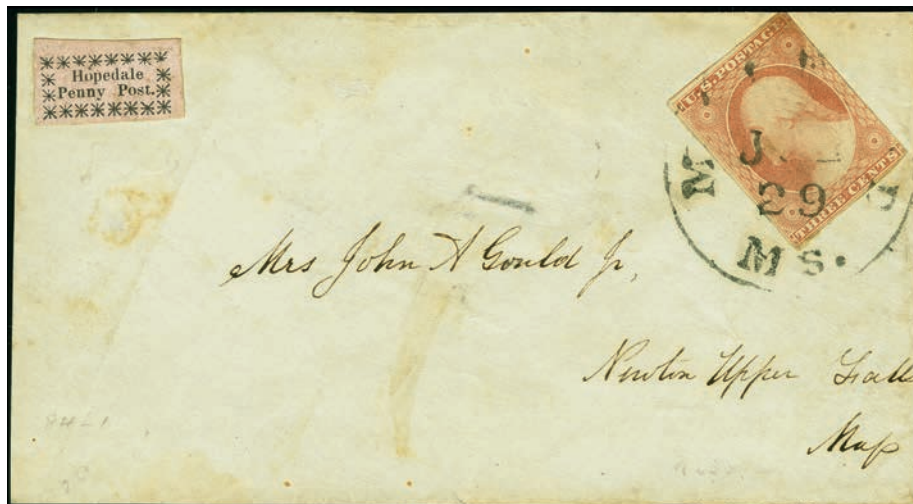 Hopedale
Penny Post.
U.S. POSTAGE
THREE CENTS
29
Ms.
Mrs John A Gould Jr,
Newton Upper Fall
Mass